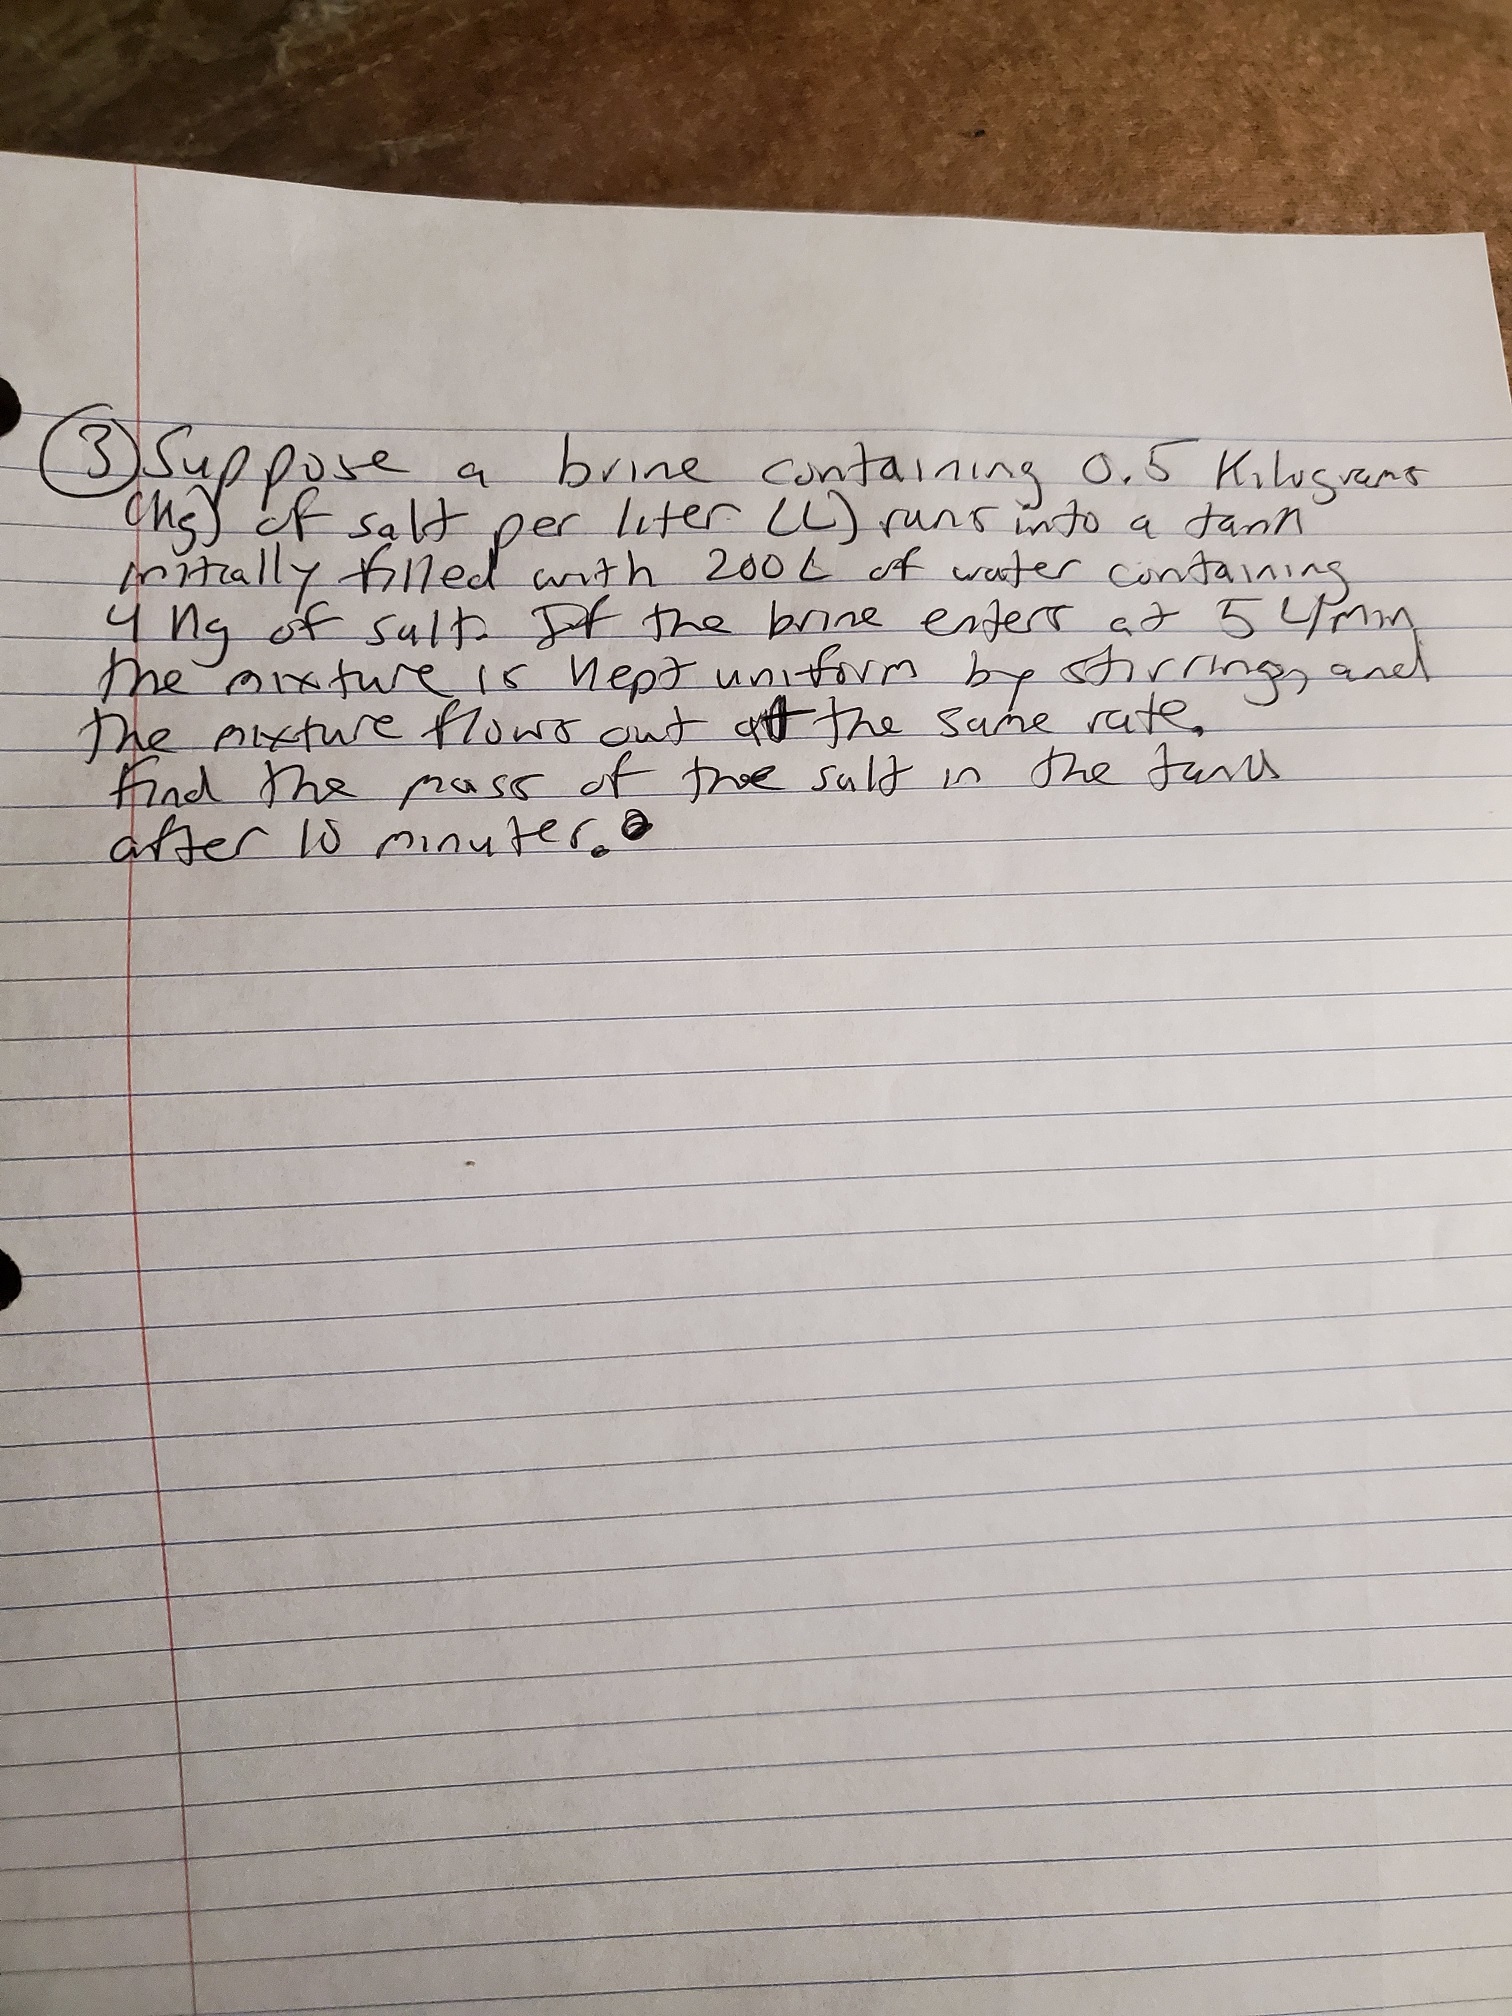 ③ Suppose a brine containing 0.5 Kilograms
(kg) of salt per liter (L) runs into a tank
initially filled with 200L of water containing
4 kg of salt. If the brine enters at 5 L/min,
the mixture is kept uniform by stirring, and
the mixture flows out at the same rate.
Find the mass of the salt in the tank
after 10 minutes.